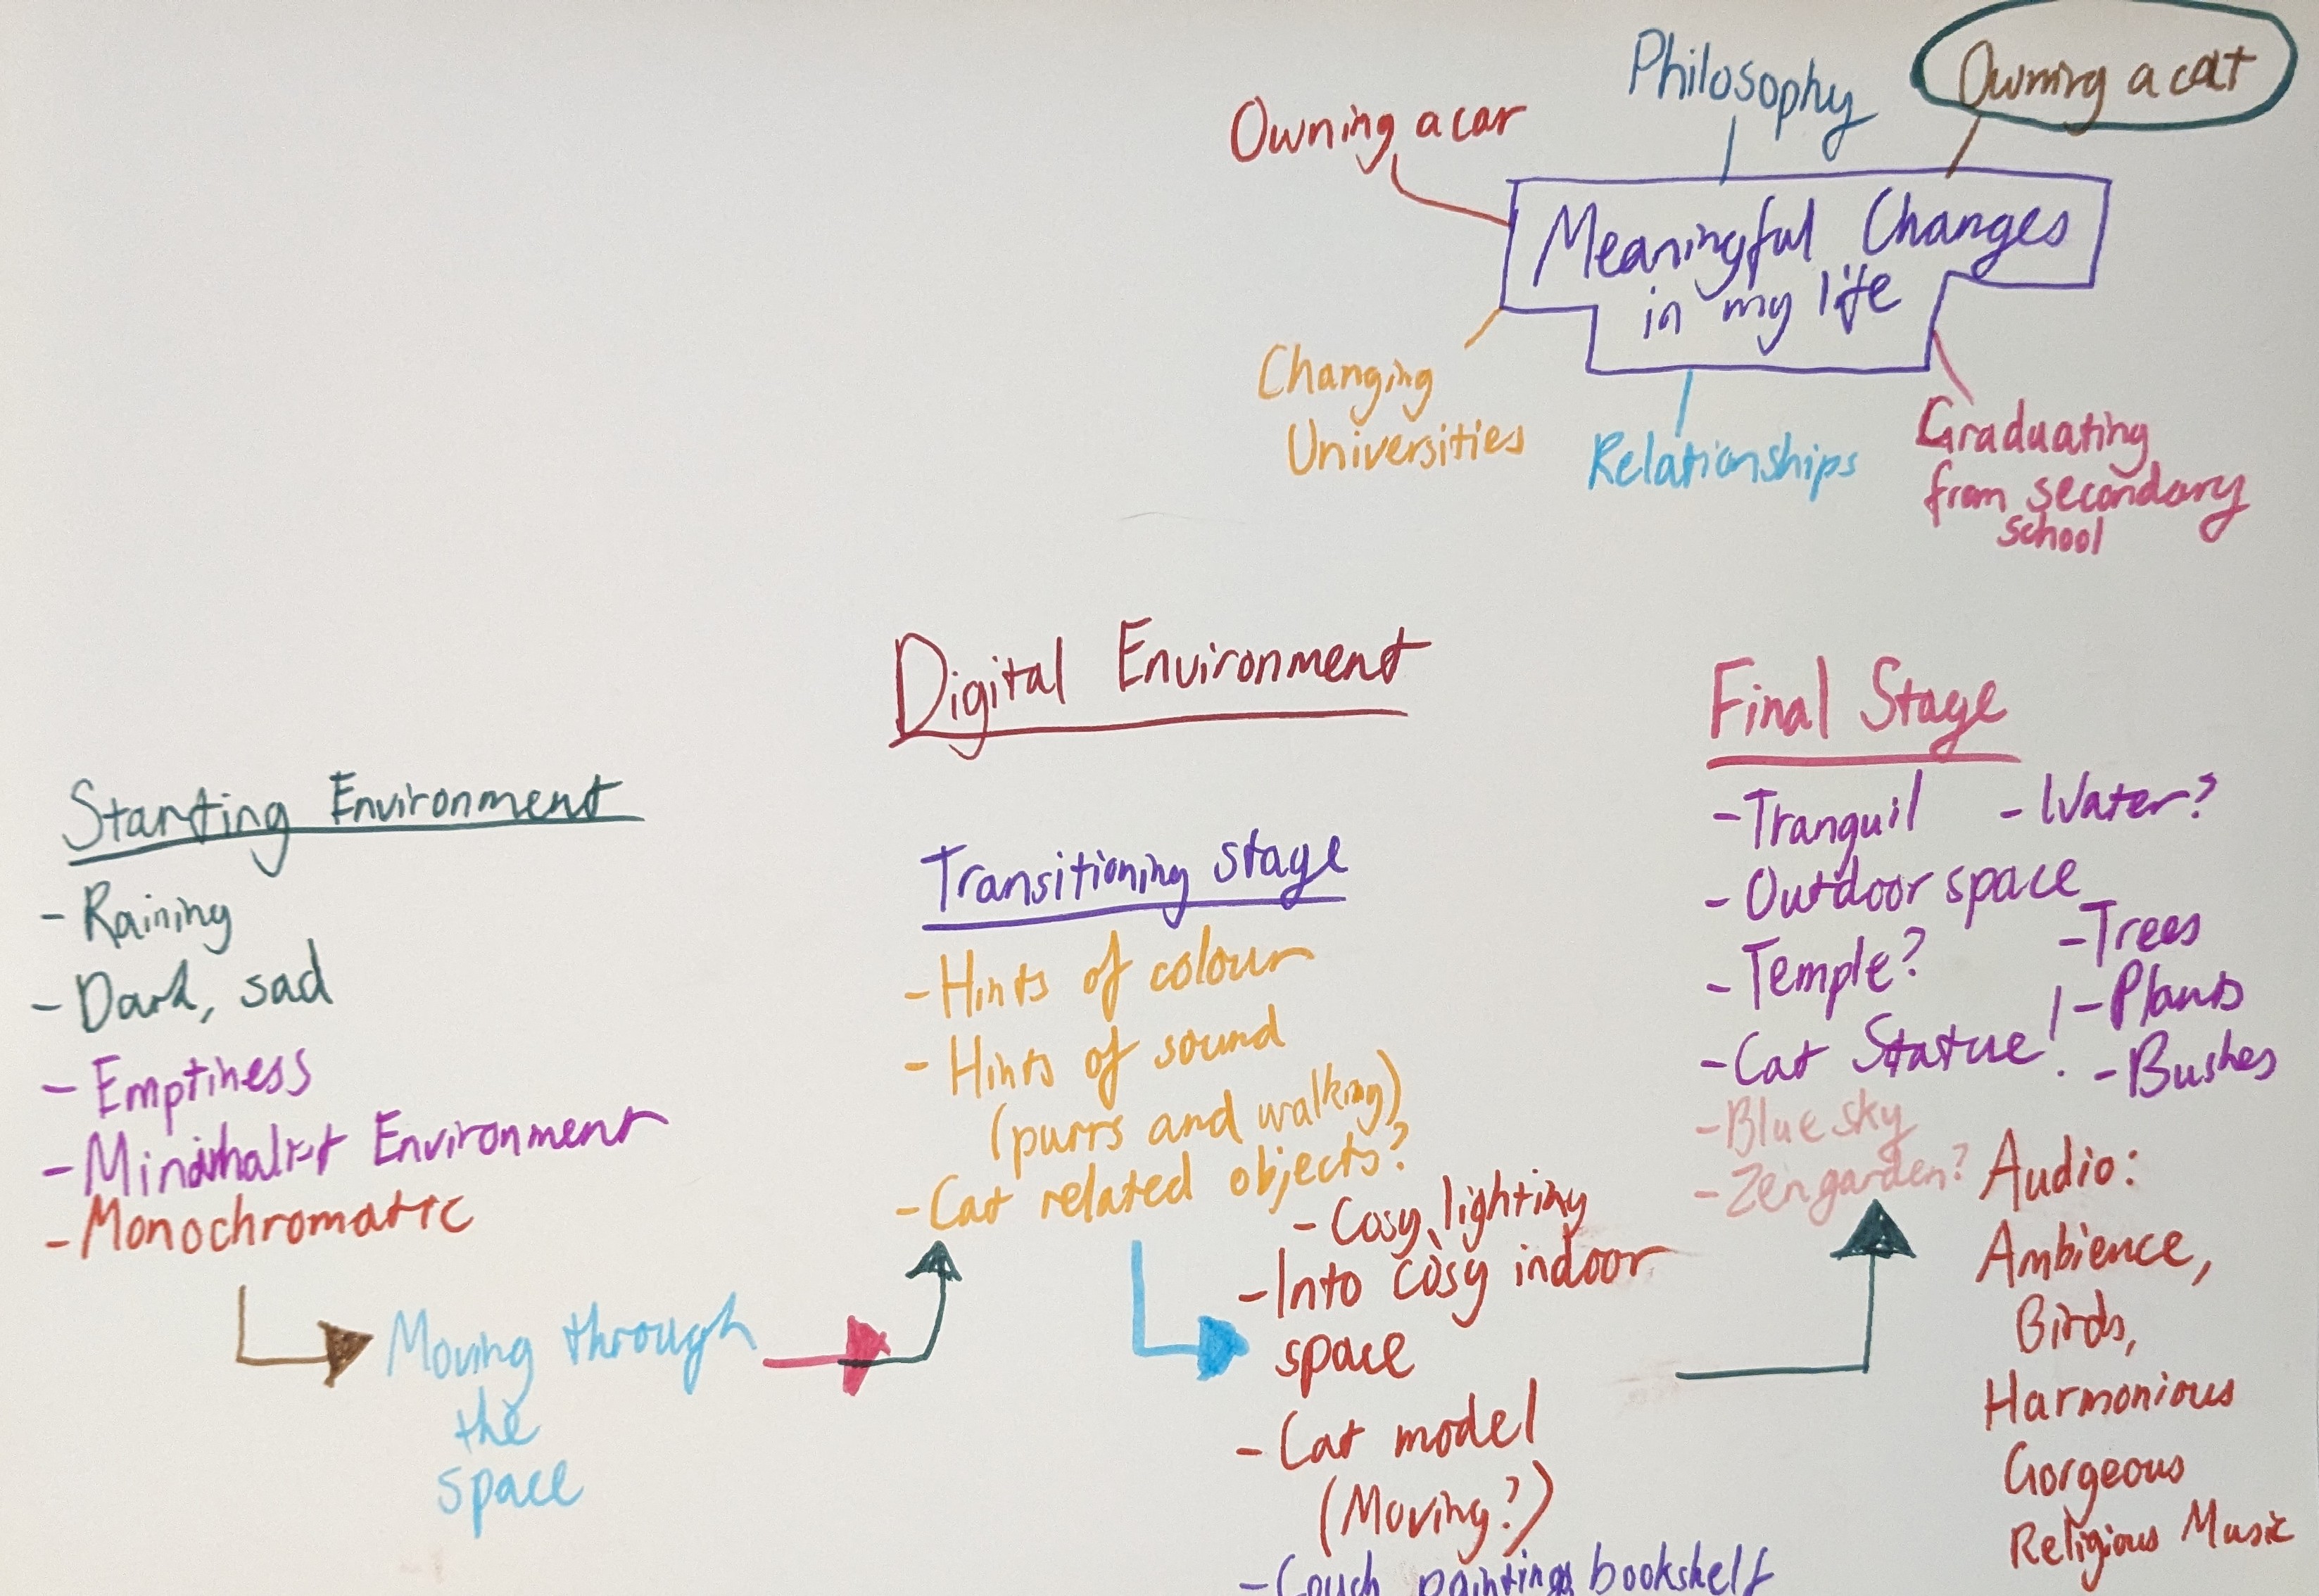 Philosophy
Owning a cat
Owning a car
Meaningful Changes
in my life
Changing
Universities
Relationships
Graduating
from secondary
school
Digital Environment
Starting Environment
- Raining
- Dark, sad
- Emptiness
- Minimalist Environment
- Monochromatic
Moving through
the
space
Transitioning stage
- Hints of colour
- Hints of sound
(purrs and walking)
- Cat related objects?
- Cosy lighting
- Into cosy indoor
space
- Cat model
(Moving?)
- Couch paintings bookshelf
Final Stage
- Tranquil
- Water?
- Outdoor space
- Trees
- Temple?
- Plants
- Cat Statue!
- Bushes
- Blue sky
- Zen garden?
Audio:
Ambience,
Birds,
Harmonious
Gorgeous
Religious Music